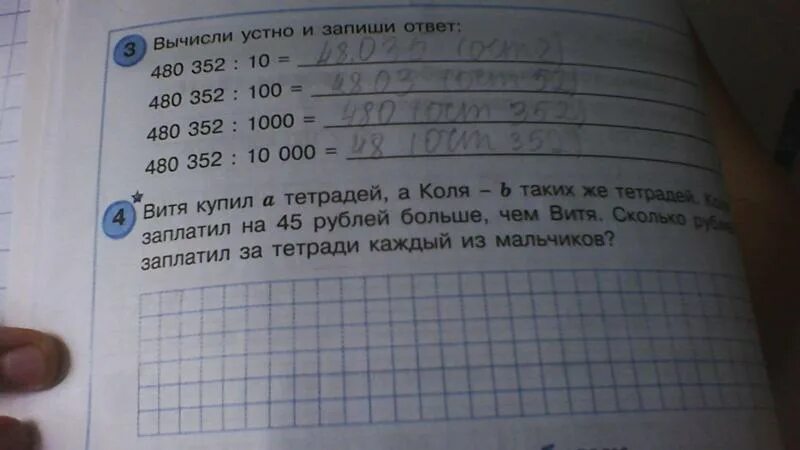 3 Вычисли устно и запиши ответ:
480 352 : 10 = 48.035 (ост 2)
480 352 : 100 = 4803 (ост 52)
480 352 : 1000 = 480 (ост 352)
480 352 : 10 000 = 48 (ост 352)
4 Витя купил a тетрадей, а Коля – b таких же тетрадей.
заплатил на 45 рублей больше, чем Витя. Сколько
заплатил за тетради каждый из мальчиков?